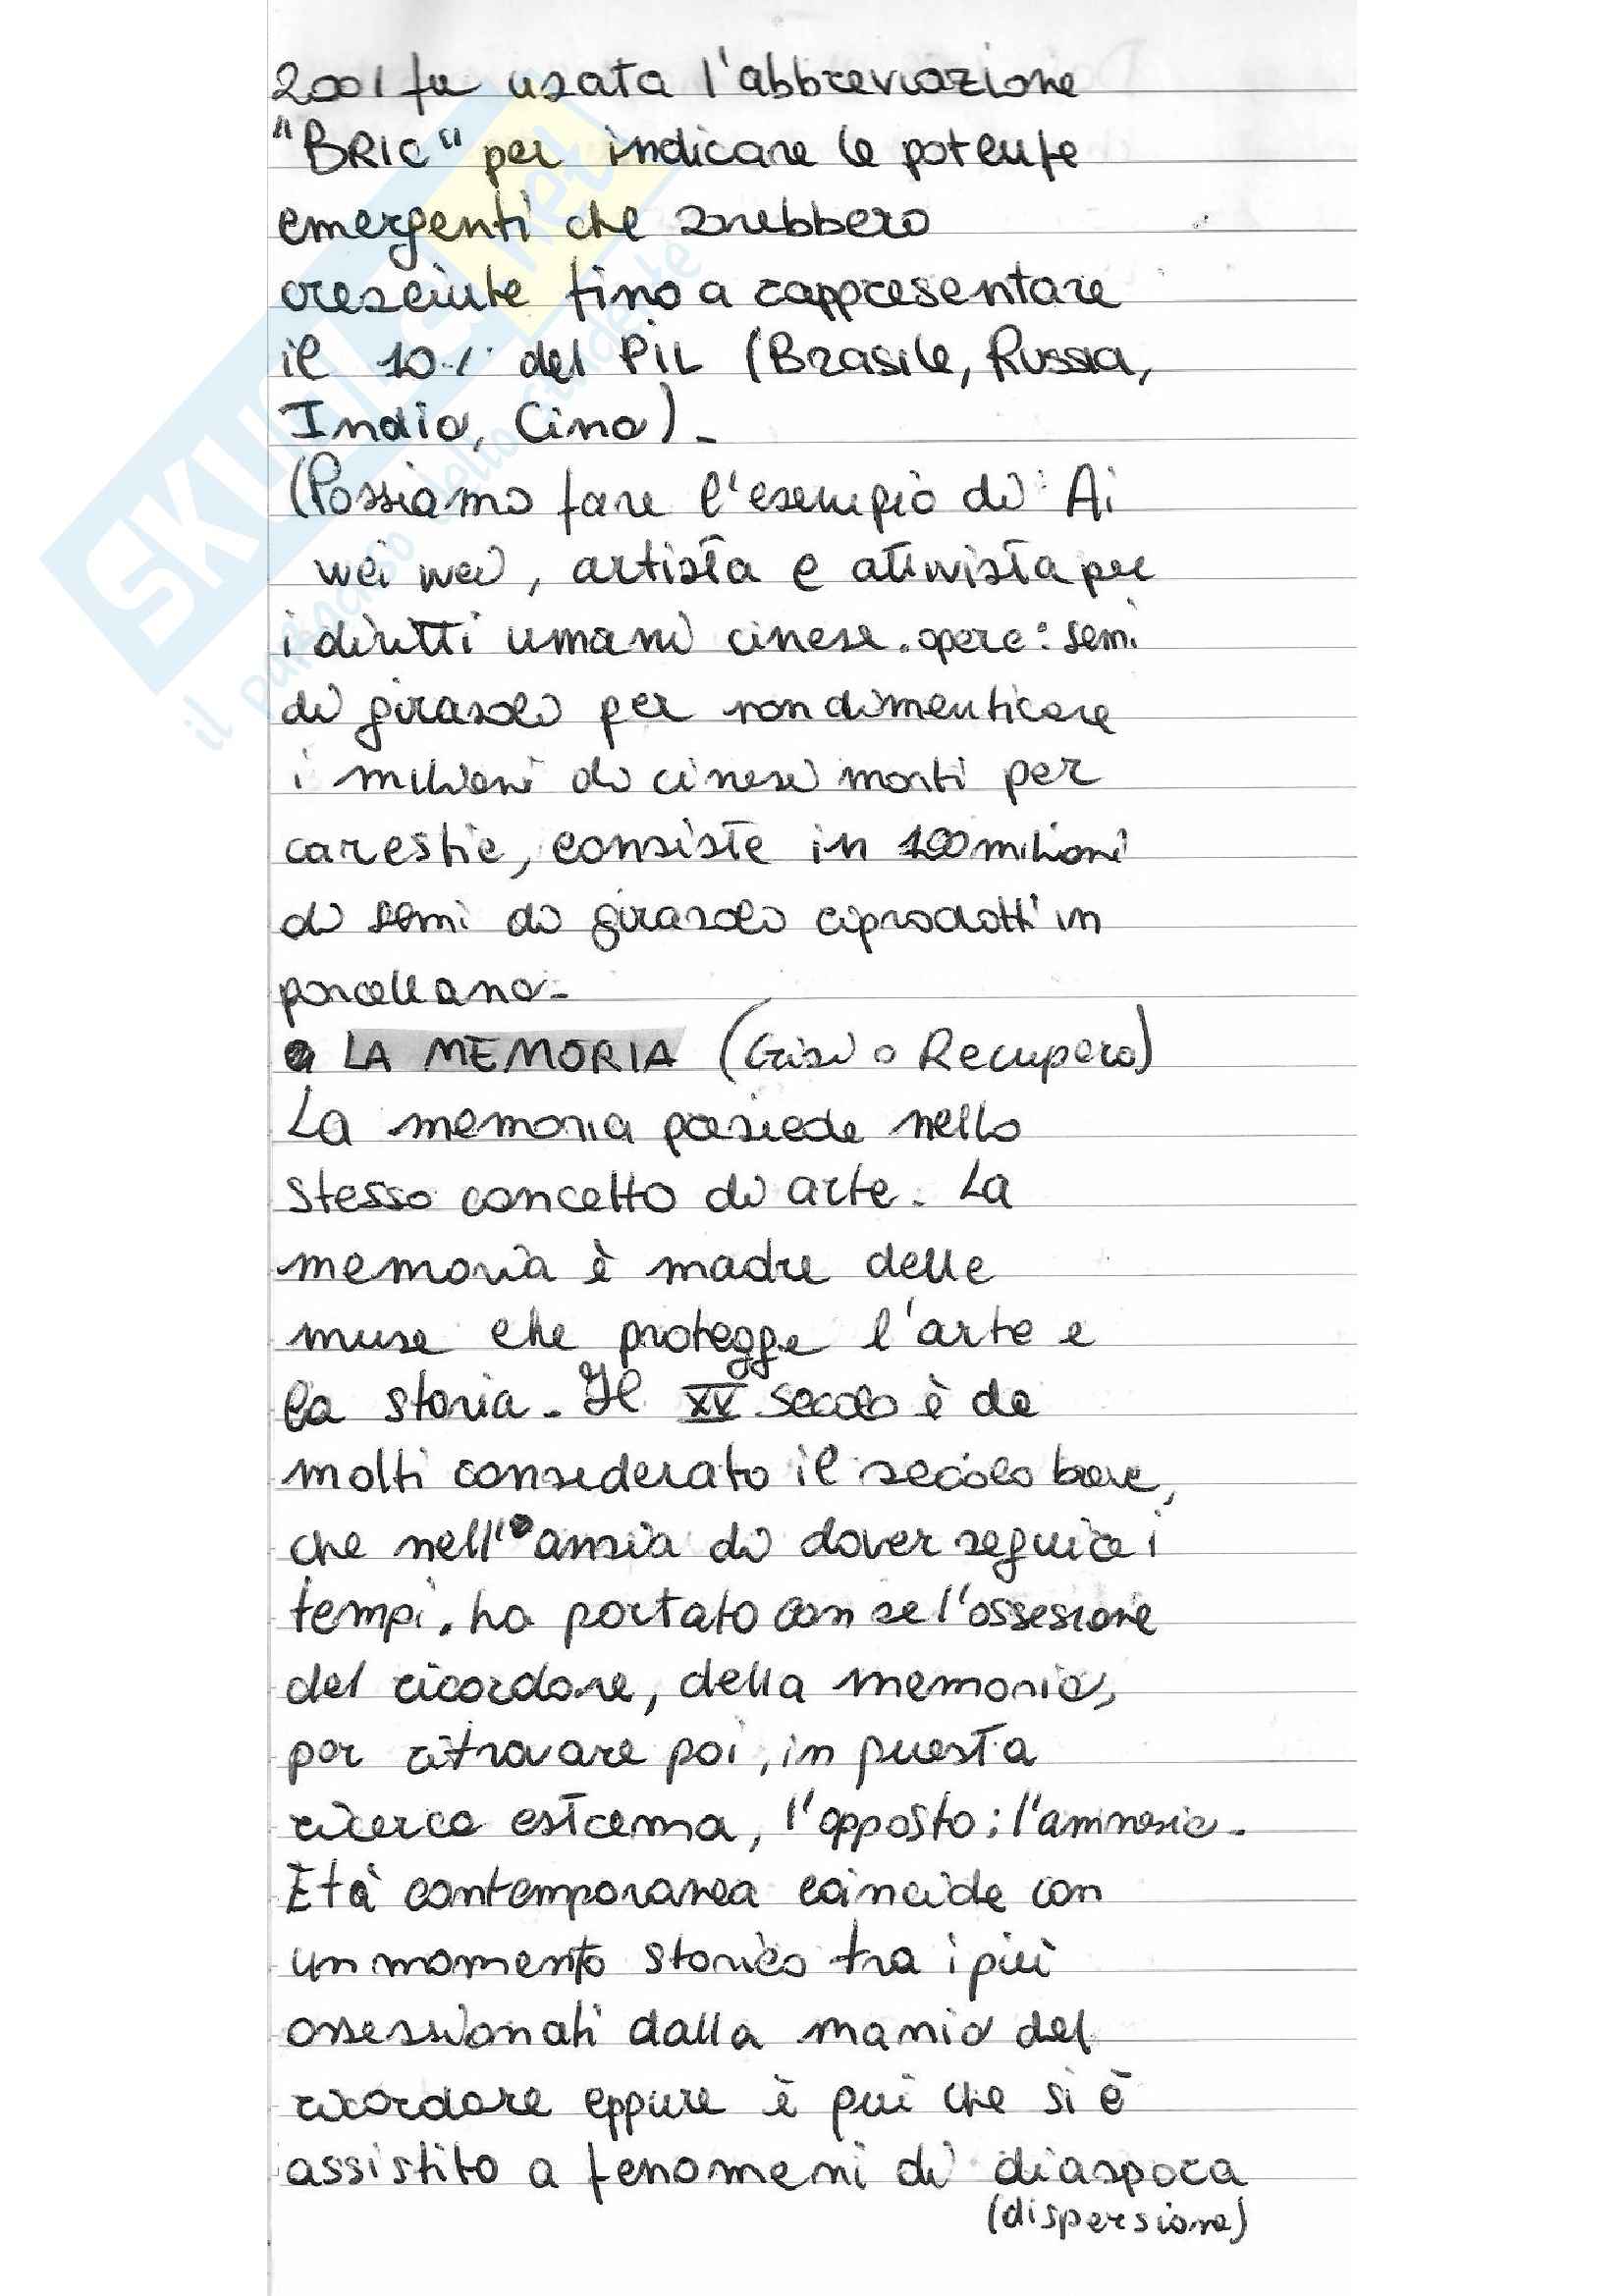 2001 fu usata l'abbreviazione
"BRIC" per indicare le potenze
emergenti che sarebbero
cresciute fino a rappresentare
il 10% del PIL (Brasile, Russia,
India, Cina).
(Possiamo fare l'esempio di Ai
wei wei, artista e attivista per
i diritti umani cinese. opere: semi
di girasole per non dimenticare
i milioni di cinesi morti per
carestie, consiste in 100 milioni
di semi di girasole riprodotti in
porcellana.
LA MEMORIA (Crisi o Recupero)
La memoria possiede nello
stesso concetto di arte. La
memoria è madre delle
muse che protegge l'arte e
la storia. Il XV secolo è da
molti considerato il secolo breve,
che nell'ansia di dover seguire i
tempi, ha portato con se l'ossessione
del ricordare, della memoria,
per ritrovare poi, in questa
ricerca estrema, l'opposto: l'amnesia.
Età contemporanea coincide con
un momento storico tra i più
ossessionati dalla mania del
ricordare eppure è qui che si è
assistito a fenomeni di diaspora
(dispersione)
SKUOLA.net
il paradiso dello studente